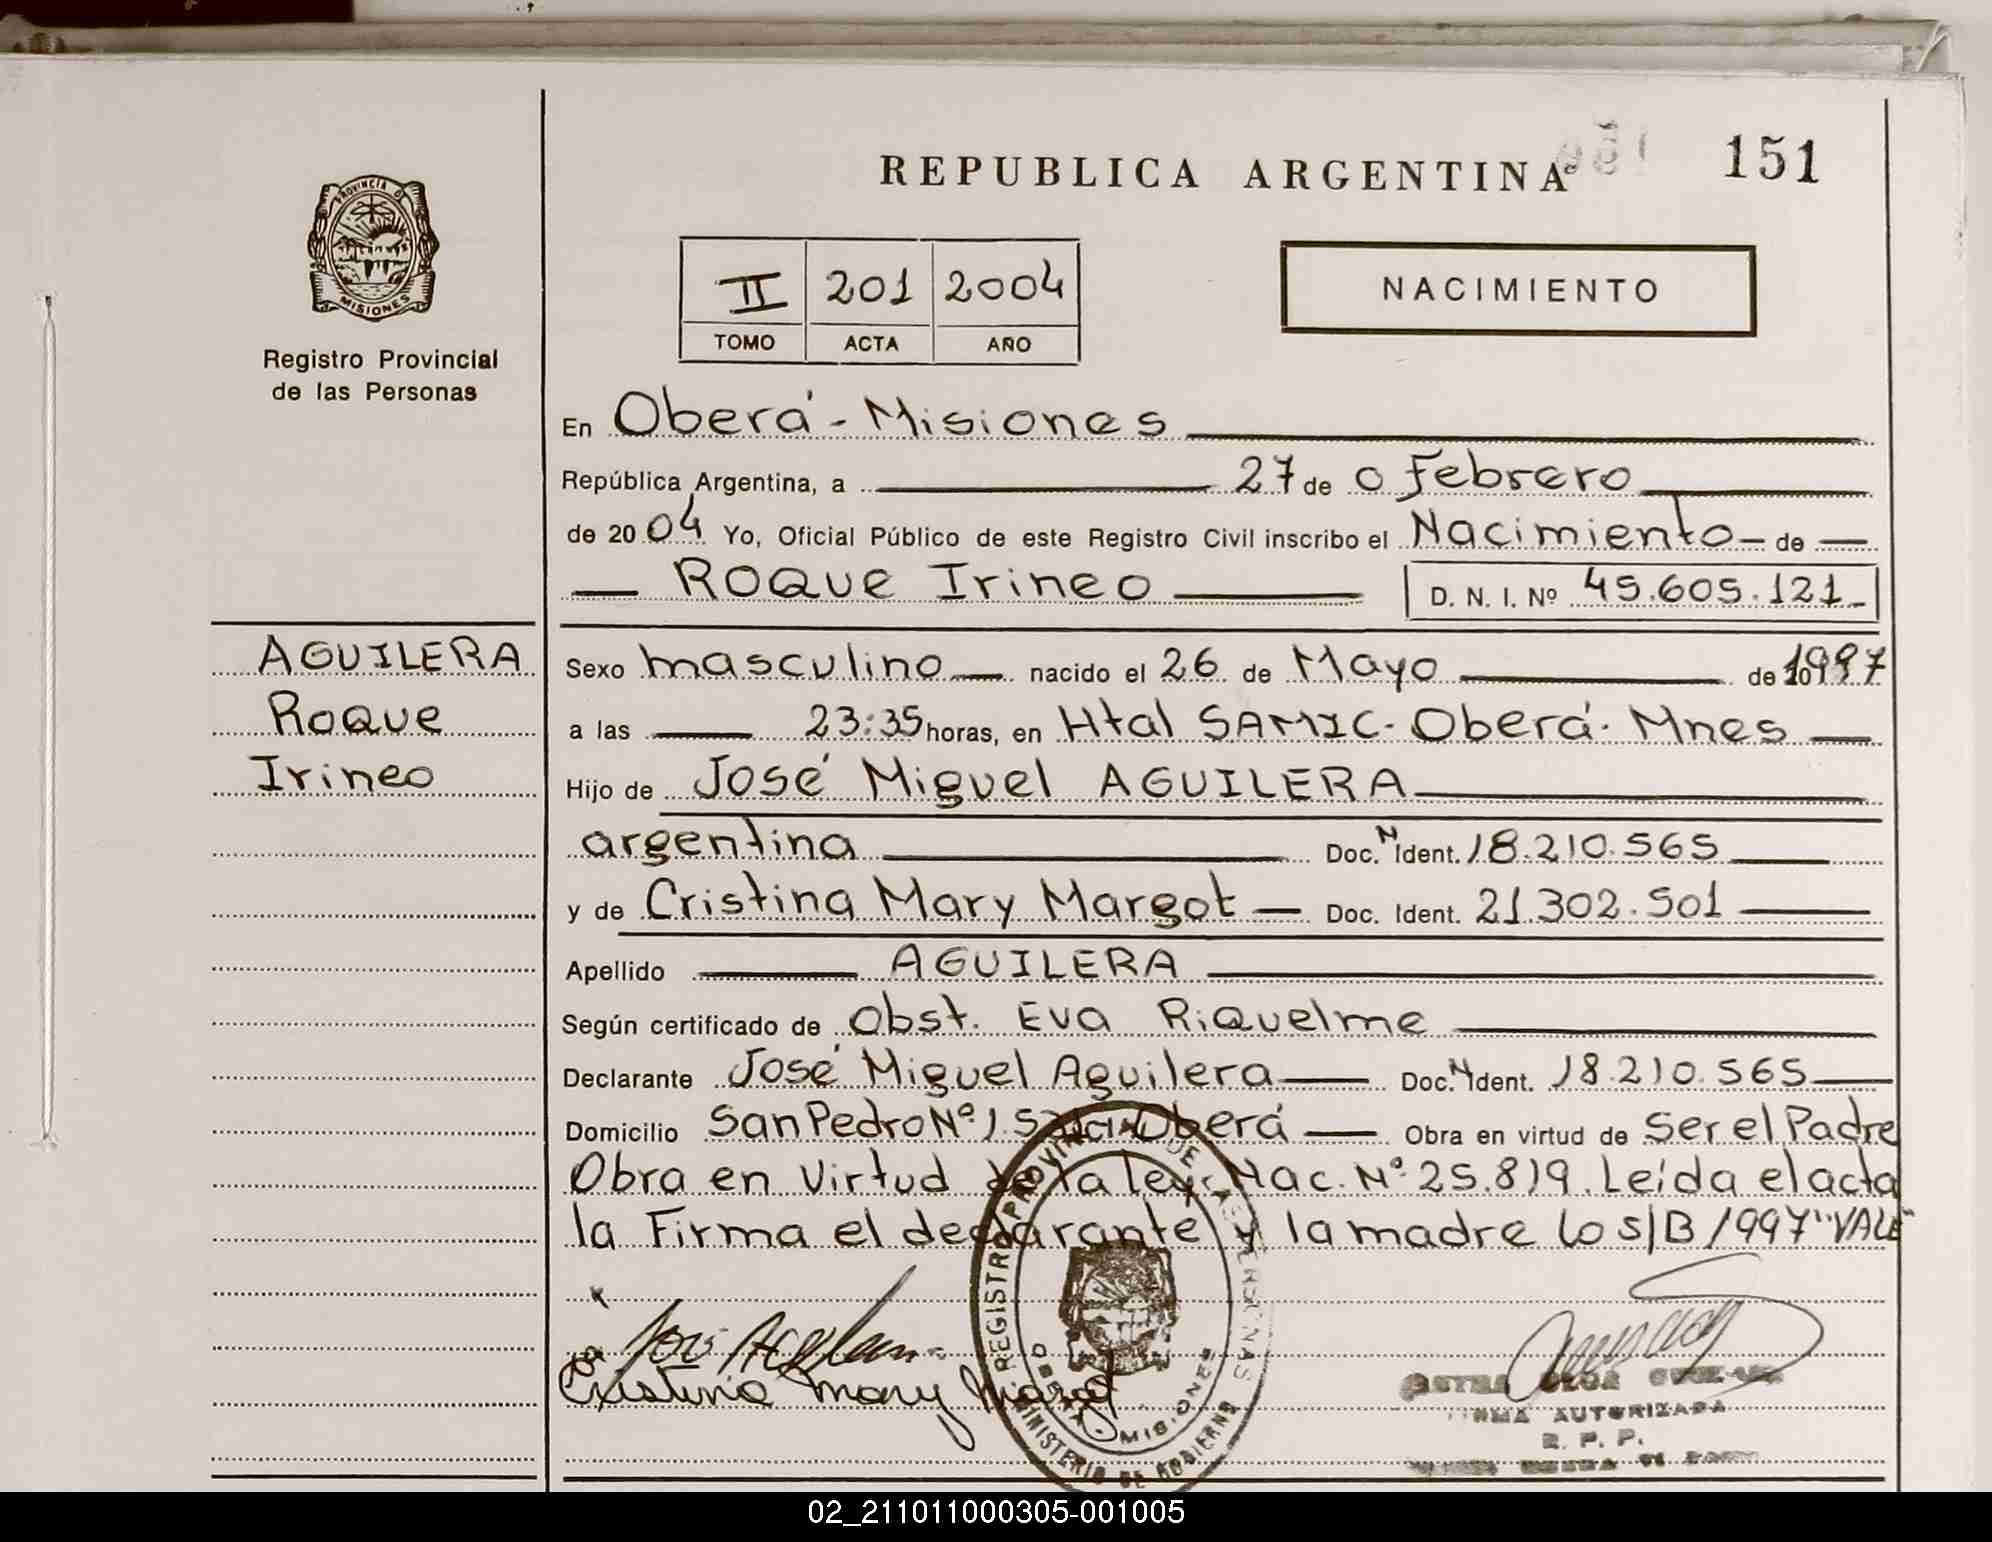 REPUBLICA ARGENTINA
151
PROVINCIA D
MISIONES
Registro Provincial
de las Personas
II 201 2004
TOMO ACTA AÑO
NACIMIENTO
En Oberá - Misiones
República Argentina, a 27 de o Febrero
de 20 04 Yo, Oficial Público de este Registro Civil inscribo el Nacimiento - de
ROQUE Irineo D. N. I. Nº 45.605.121
AGUILERA
Roque
Irineo
Sexo masculino nacido el 26 de Mayo de 1997
a las 23:35 horas, en Htal SAMIC - Oberá - Mnes
Hijo de José Miguel AGUILERA
argentina Doc. N Ident. 18.210.565
y de Cristina Mary Margot Doc. Ident. 21.302.501
Apellido AGUILERA
Según certificado de Obst. Eva Riquelme
Declarante José Miguel Aguilera Doc. N Ident. 18.210.565
Domicilio San Pedro Nº 1 Oberá Obra en virtud de Ser el Padre
Obra en Virtud de la ley Nac. Nº 25.819. Leída el acta
la Firma el declarante y la madre lo s/B 1997 "VALE"
Cristina Mary Margot
REGISTRO PROVINCIAL DE LAS PERSONAS
OBERA - MISIONES
MINISTERIO DE GOBIERNO
FIRMA AUTORIZADA
R. P. P.
02_211011000305-001005